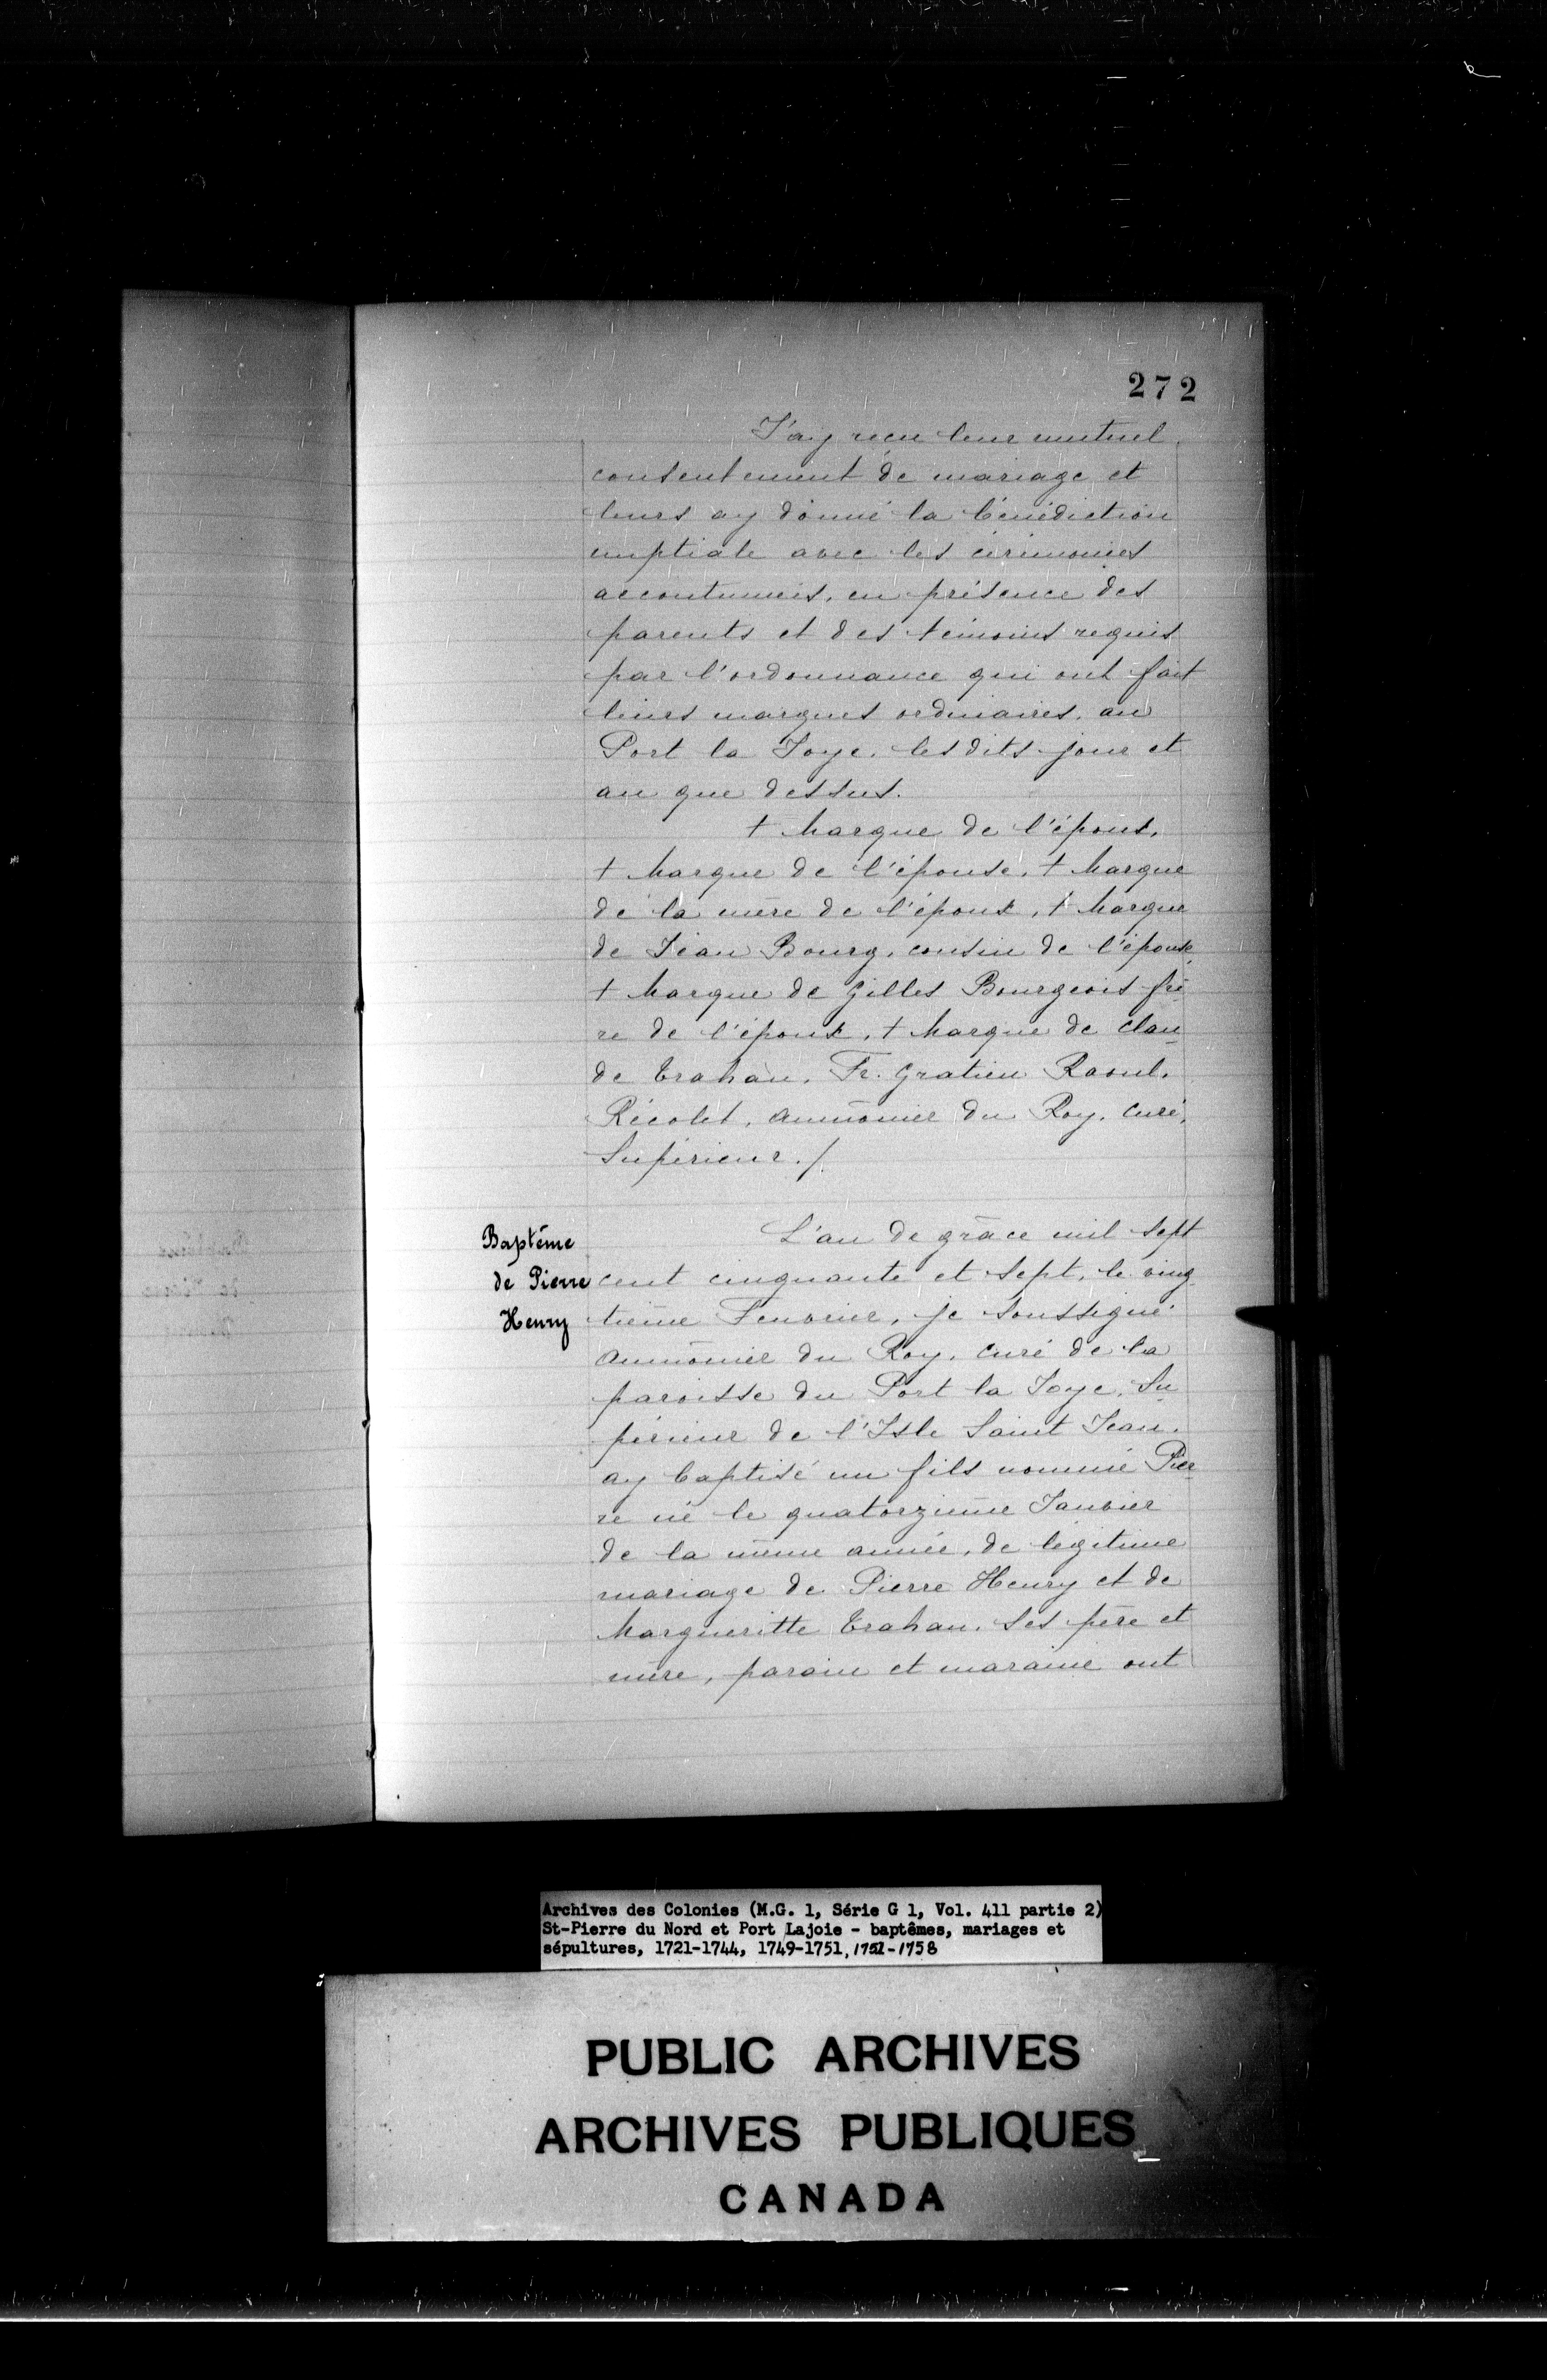 272
J'ay reçu leur mutuel
consentement de mariage et
leurs ay donné la bénédiction
nuptiale avec les cérémonies
accoutumeés, en présence des
parents et des témoins requis
par l'ordonnance qui ont fait
leurs marques ordinaires, au
Port la Joye, les dits jour et
an que dessus.
† Marque de l'époux,
† Marque de l'épouse, † Marque
de la mère de l'époux, † Marque
de Jean Bourg, cousin de l'épouse,
† Marque de Gilles Bourgeois frè
re de l'époux, † Marque de Clau
de Trahan, Fr. Gratien Raoul,
Récolet, aumônier du Roy, curé,
Supérieur./.
Baptême
de Pierre
Henry
L'an de grâce mil sept
cent cinquante et sept, le ving
tième Feuvrier, je soussigné
aumônier du Roy, curé de la
paroisse du Port la Joye, Su
périeur de l'Isle Saint Jean,
ay baptisé un fils nommé Pier
re né le quatorzième Janvier
de la même année, de légitime
mariage de Pierre Henry et de
Margueritte Trahan, ses père et
mère, parain et maraine ont
Archives des Colonies (M.G. 1, Série G 1, Vol. 411 partie 2)
St-Pierre du Nord et Port Lajoie - baptêmes, mariages et
sépultures, 1721-1744, 1749-1751, 1752-1758
PUBLIC ARCHIVES
ARCHIVES PUBLIQUES
CANADA